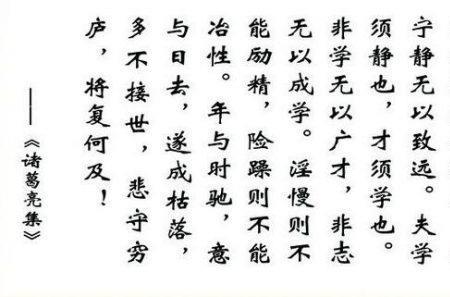 宁静无以致远。夫学
须静也，才须学也。
非学无以广才，非志
无以成学。淫慢则不
能励精，险躁则不能
冶性。年与时驰，意
与日去，遂成枯落，
多不接世，悲守穷
庐，将复何及！
——《诸葛亮集》